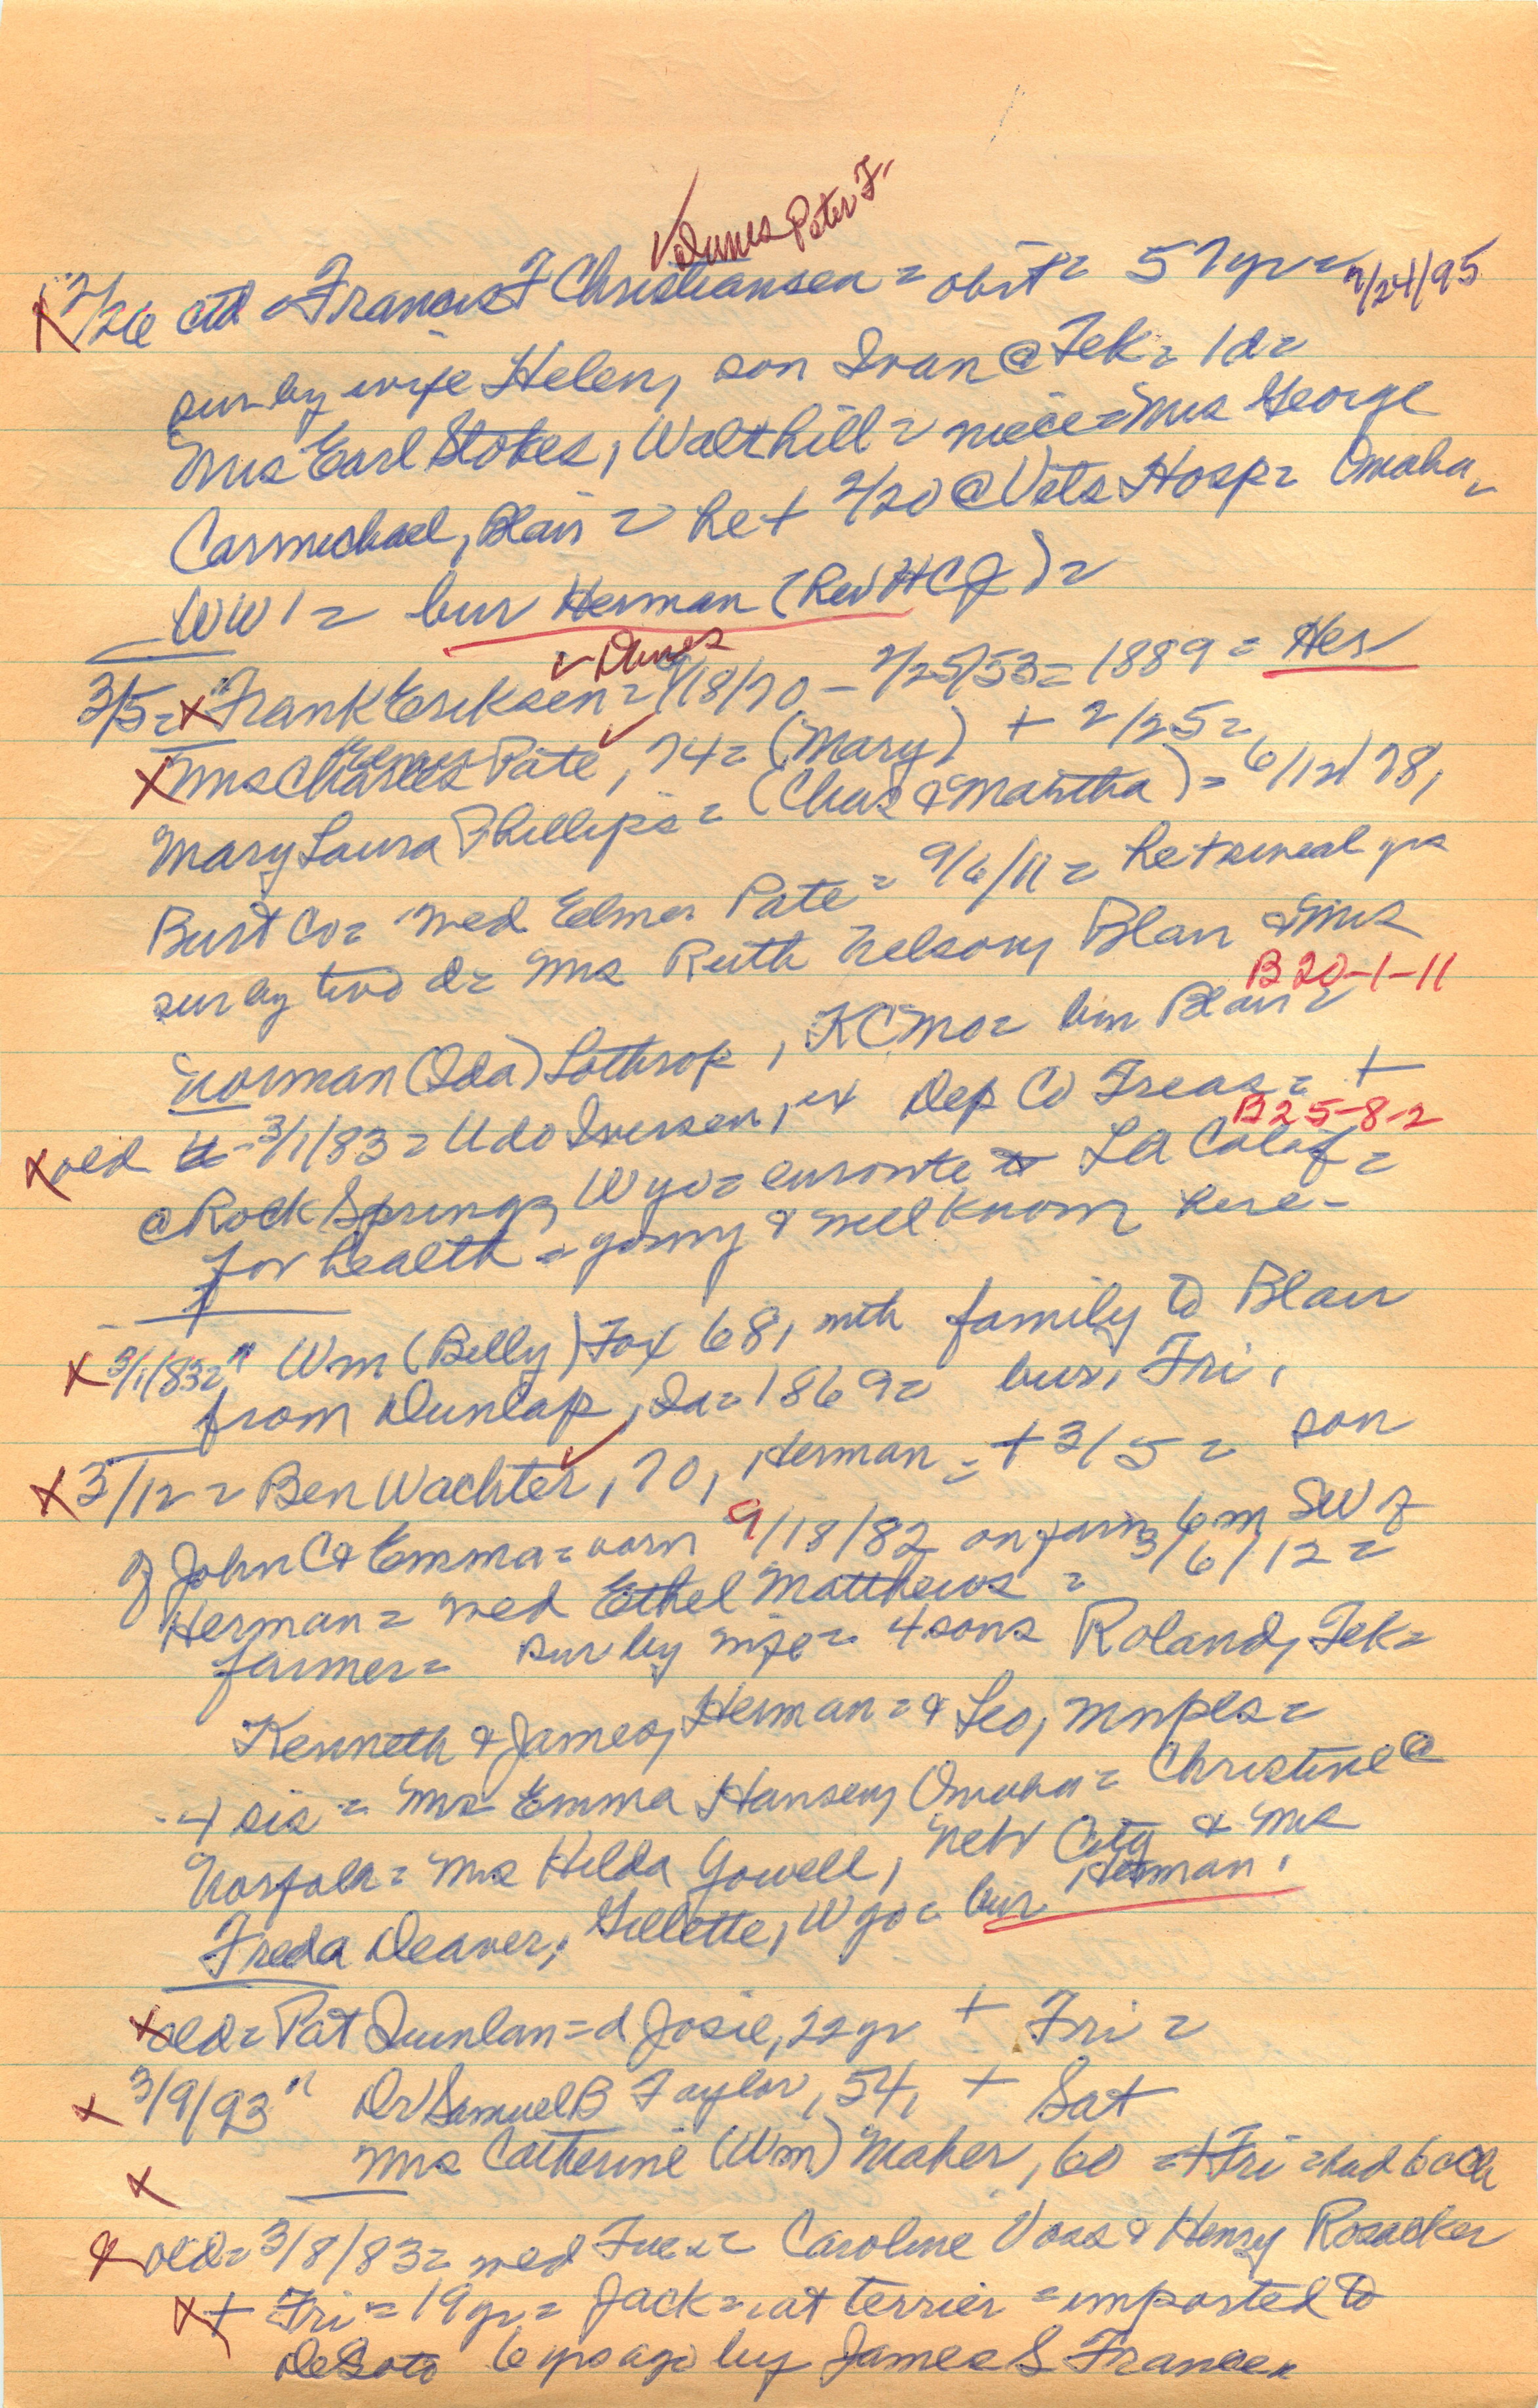 ✓Dunes Peter F.
X 2/26 ctd = Francis F Christiansen = obit = 57 yr = 2/24/95
sur by wife Helen, son Ivan @ Tek = 1 d =
Mrs Earl Stokes, Walthill = niece = Mrs George
Carmichael, Blair = he + 2/20 @ Vets Hosp = Omaha,
WW 1 = bur Herman (Rev HCJ) =
✓ Dunes
3/5 = X "Frank Eriksen = 9/18/70 - 2/25/53 = 1889 = Her
Elmer
X Mrs Charles Pate, 74 = (Mary) + 2/25 =
Mary Laura Phillips = (Chas & Martha) = 6/12/78,
Burt Co = med Eelmer Pate = 9/6/11 = he + several yrs
sur by two d = Mrs Ruth Nelson, Blair & Mrs
B 20-1-11
Norman (Ida) Lothrop, KC Mo = bur Blair =
X old 3/1/83 = Udo Iversen, ex Dep Co Treas = +
B 25-8-2
@ Rock Springs, Wyo = enroute to LA Calif =
for health = young & well known here -
X 3/1/83 = " Wm (Billy) Fox 68, with family to Blair
from Dunlap, Ia = 1869 = bur, Fri,
X 3/12 = Ben Wachter, 70, Herman = + 3/5 = son
of John C & Emma = born 9/18/82 on farm 6 m SW of
Herman = med Ethel Matthews = 3/6/12 =
farmer = sur by wife = 4 sons Roland, Tek =
Kenneth & James, Herman = & Leo, Mnpls =
4 sis = Mrs Emma Hansen, Omaha = Christine @
Norfolk = Mrs Hilda Gowell, Neb City & Mrs
Freda Deaver, Gillette, Wyo = bur Herman,
X old = Pat Quinlan = d Josie, 22 yr + Fri =
X 3/9/93 " Dr Samuel B Taylor, 54, + Sat
X Mrs Catherine (Wm) Maher, 60 = + Fri = had 6 ch
X old = 3/8/83 = med Tues = Caroline Voss & Henry Rosacker
X + Fri = 19 yr = Jack = rat terrier = imported to
DeSoto 6 yrs ago by James S Francen